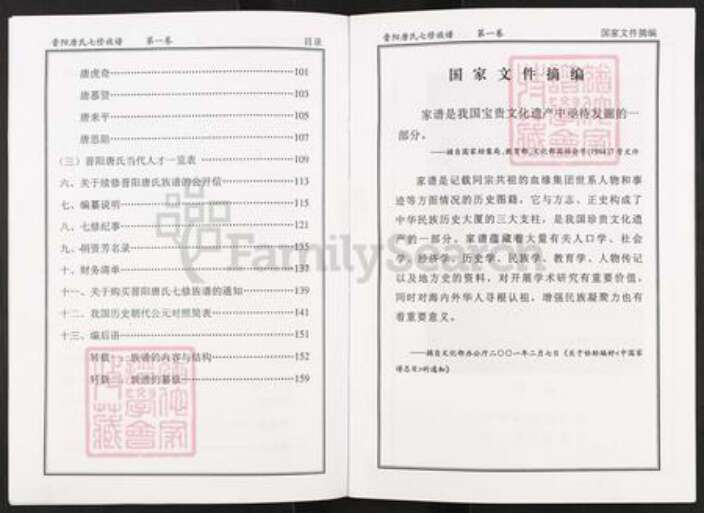 晋阳唐氏七修族谱 第一卷 目录
唐虎奇 101
唐慕贤 103
唐来平 105
唐思聪 107
(三)晋阳唐氏当代人才一览表 109
六、关于续修晋阳唐氏族谱的公开信 113
七、编纂说明 115
八、七修纪事 121
九、捐资芳名录 135
十、财务清单 137
十一、关于购买晋阳唐氏七修族谱的通知 139
十二、我国历史朝代公元对照简表 141
十三、编后语 151
转载一:族谱的内容与结构 152
族谱的纂修 159
晋阳唐氏七修族谱 第一卷 国家文件摘编
国家文件摘编
家谱是我国宝贵文化遗产中亟待发掘的一
部分。
——摘自国家档案局、教育部、文化部
家谱是记载同宗共祖的血缘集团世系人物和事
迹等方面情况的历史图籍,它与方志、正史构成了
中华民族历史大厦的三大支柱,是我国珍贵文化遗
产的一部分。家谱蕴藏着大量有关人口学、社会
学、经济学、历史学、民族学、教育学、人物传记
以及地方史的资料,对开展学术研究有重要价值,
同时对海内外华人寻根认祖,增强民族凝聚力也有
着重要意义。
——摘自文化部办公厅二〇〇一年二月七日《关于协助编好<中国家
谱总目>的通知》
FamilySearch